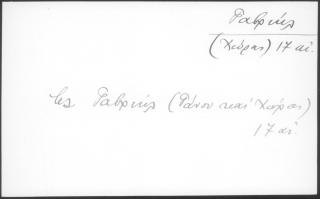 Γαβριήλ
(Χώρας) 17 αι.
Γαβριήλ (Γάνου και Χώρας)
17 αι.